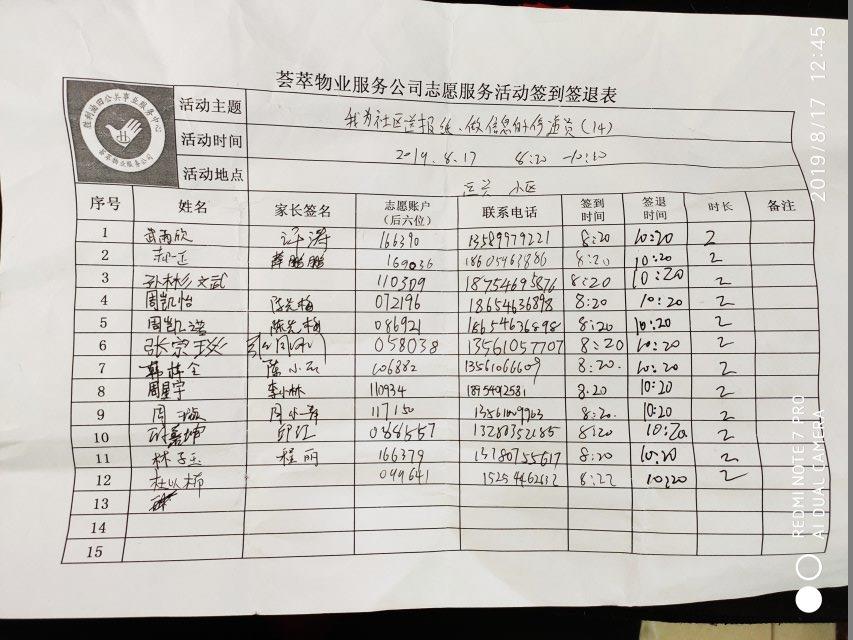 荟萃物业服务公司志愿服务活动签到签退表
胜利油田公共事业服务中心
荟萃物业服务公司
活动主题 我为社区送报纸、做信息的传递员(14)
活动时间 2019.8.17 8:20-10:20
活动地点 小区
序号 姓名 家长签名 志愿账户(后六位) 联系电话 签到时间 签退时间 时长 备注
1 武雨欣 许涛 166390 13589979221 8:20 10:20 2
2 169036 8:20 10:20 2
3 孙彬彬 文武 18754695876 8:20 10:20 2
4 周凯怡 陈先梅 072196 18654636898 8:20 10:20 2
5 周凯诺 陈先梅 086921 18654636898 8:20 10:20 2
6 张宗 058038 13561057707 8:20 10:20 2
7 韩 陈小 006882 13561066609 8:20 10:20 2
8 周星宇 李小林 110934 8:20 10:20 2
9 周 周 117150 8:20 10:20 2
10 088557 13280352185 8:20 10:20 2
11 林子玉 程丽 166379 13780755617 8:20 10:20 2
12 杜以 099641 8:22 10:20 2
13
14
15
2019/8/17 12:45
REDMI NOTE 7 PRO
AI DUAL CAMERA